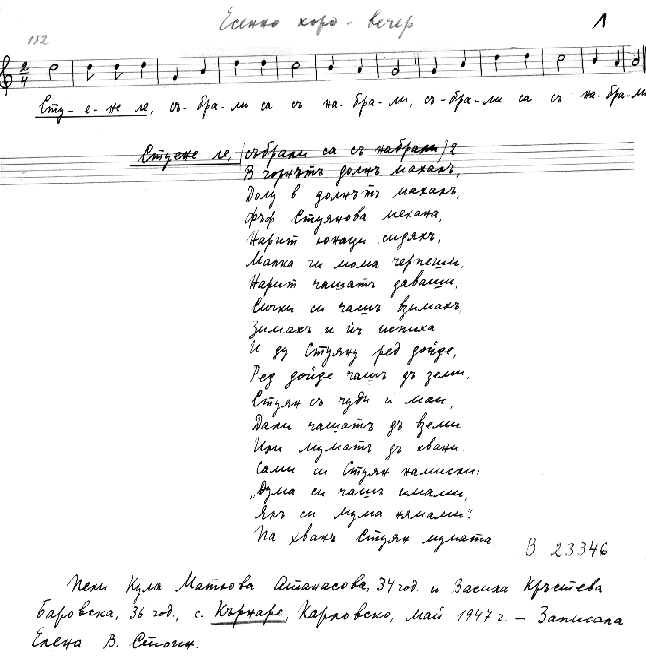 Есенно хоро - вечер
1
152
2/4
Сту-е-не ле, съ-бра-ли са съ на-бра-ли, съ-бра-ли са съ на-бра-ли
Стуене ле, (събрали са съ набрали) 2
В горнътъ долнъ махалъ,
Долу в долнътъ махалъ,
Фъф Стуянова механа,
Нарит юнаци сидяхъ,
Малка ги мома черпеши,
Нарит чашатъ даваши,
Сички си чашъ взимахъ,
Зимахъ и йъ испиха
И ду Стуяну ред дойде,
Ред дойде чашъ дъ земи.
Стуян съ чуди и маи,
Дали чашатъ дъ вземи
Или мумата дъ хвани.
Сами си Стуян намисли:
„Дума си чашъ имами,
Якъ си мума нямами“.
Па хванъ Стуян мумата
В 23346
Пели Кула Маткова Атанасова, 34 год. и Василка Кръстева
Баровска, 36 год., с. Кърнаре, Карловско, май 1947 г. – Записала
Елена В. Стоин.